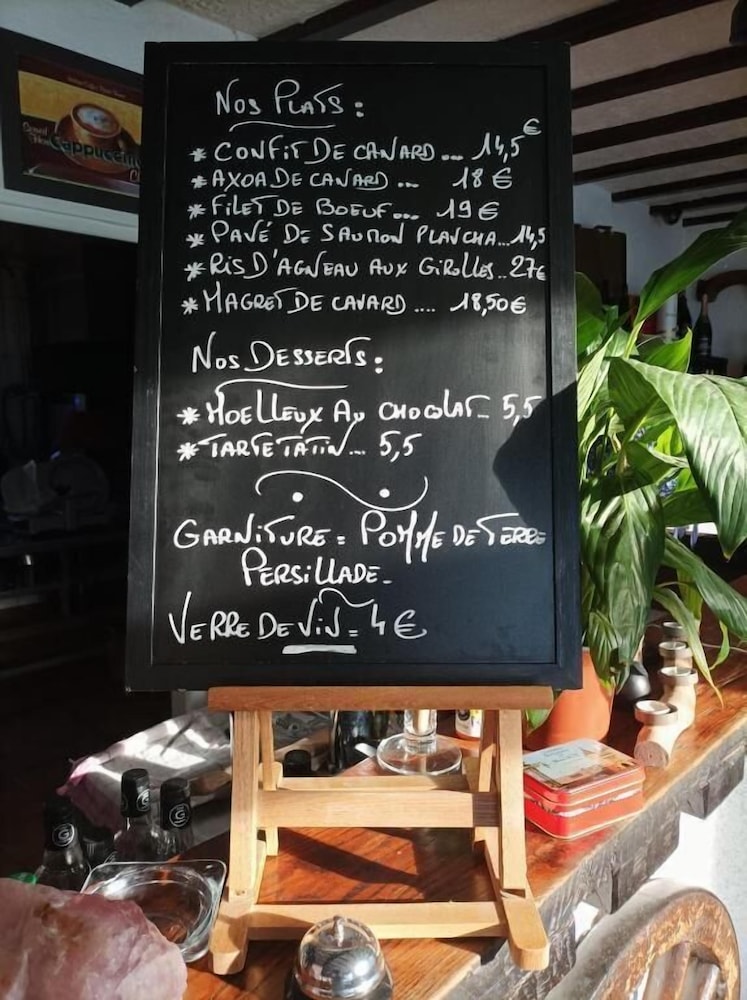 Cappuccino
NOS PLATS :
* CONFIT DE CANARD... 14,5€
* AXOA DE CANARD ... 18 €
* FILET DE BOEUF... 19 €
* PAVÉ DE SAUMON PLANCHA...14,5
* RIS D'AGNEAU AUX GIROLLES..27€
* MAGRET DE CANARD .... 18,50€
NOS DESSERTS :
* MOELLEUX AU CHOCOLAT... 5,5
* TARTE TATIN... 5,5
GARNITURE = POMME DE TERRE
PERSILLADE.
VERRE DE VIN = 4 €